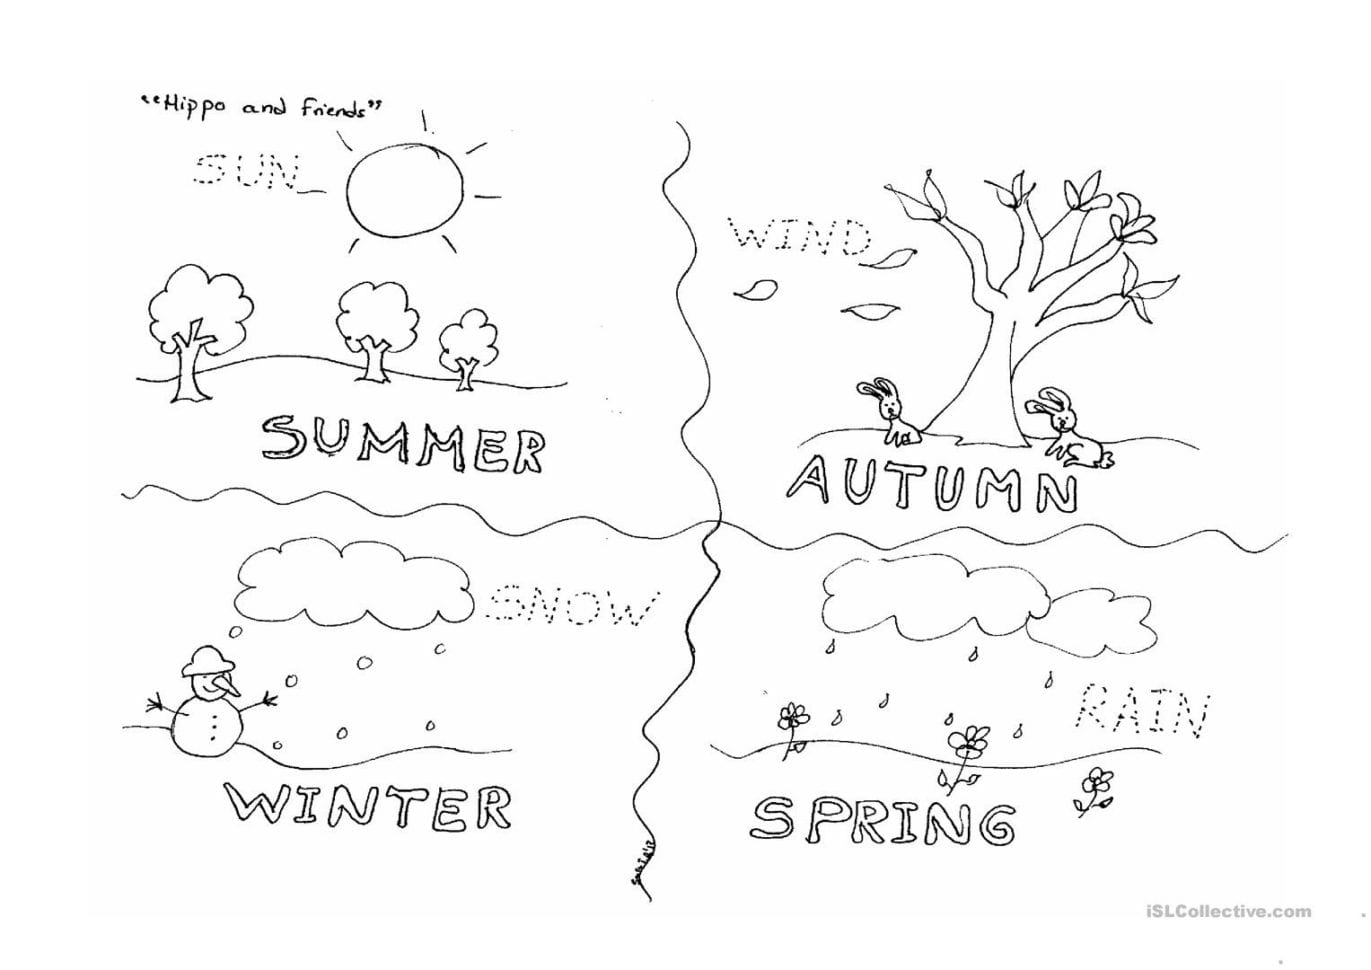 "Hippo and Friends"
SUN
SUMMER
WIND
AUTUMN
SNOW
WINTER
RAIN
SPRING
iSLCollective.com